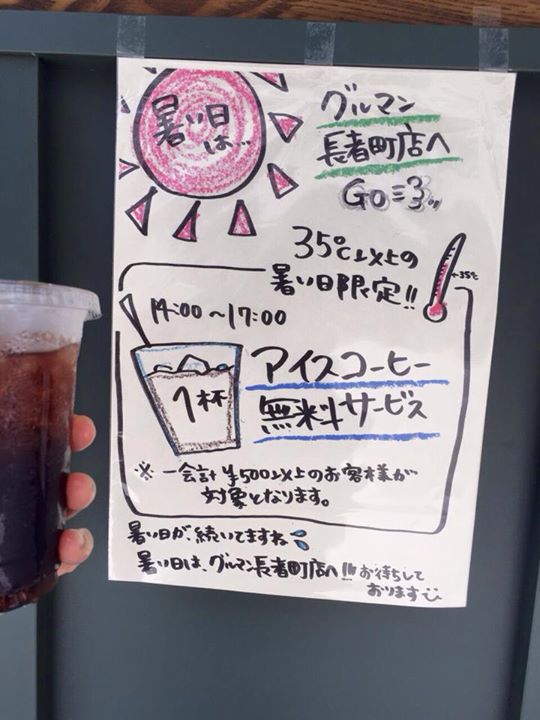 暑い日
は…
グルマン
長者町店へ
GO
35℃以上の
暑い日限定!!
←35℃
14:00〜17:00
1杯
アイスコーヒー
無料サービス
※一会計¥500以上のお客様が
対象となります。
暑い日が、続いてますね
暑い日は、グルマン長者町店へ!!お待ちして
おります